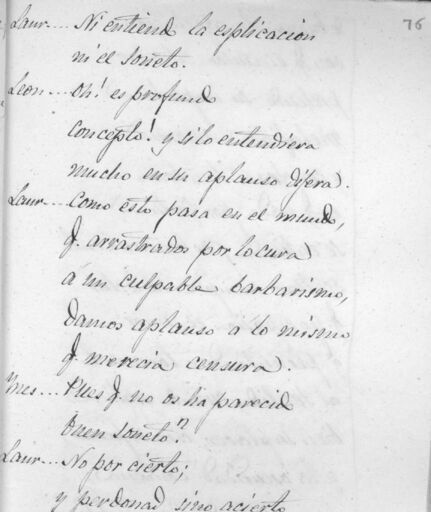 76
Laur... Ni entiend la esplicacion
ni el soneto.
Leon... Oh! es profund
concepto! y si lo entendiera
mucho en su aplauso dijera.
Laur... Como esto pasa en el mund,
q. arrastrados por locura
a un culpable barbarismo,
damos aplauso a lo mismo
q. merecia censura.
Ynes... Pues q. no os ha parecid
buen soneto?
Laur... No por cierto;
y perdonad sino acierto